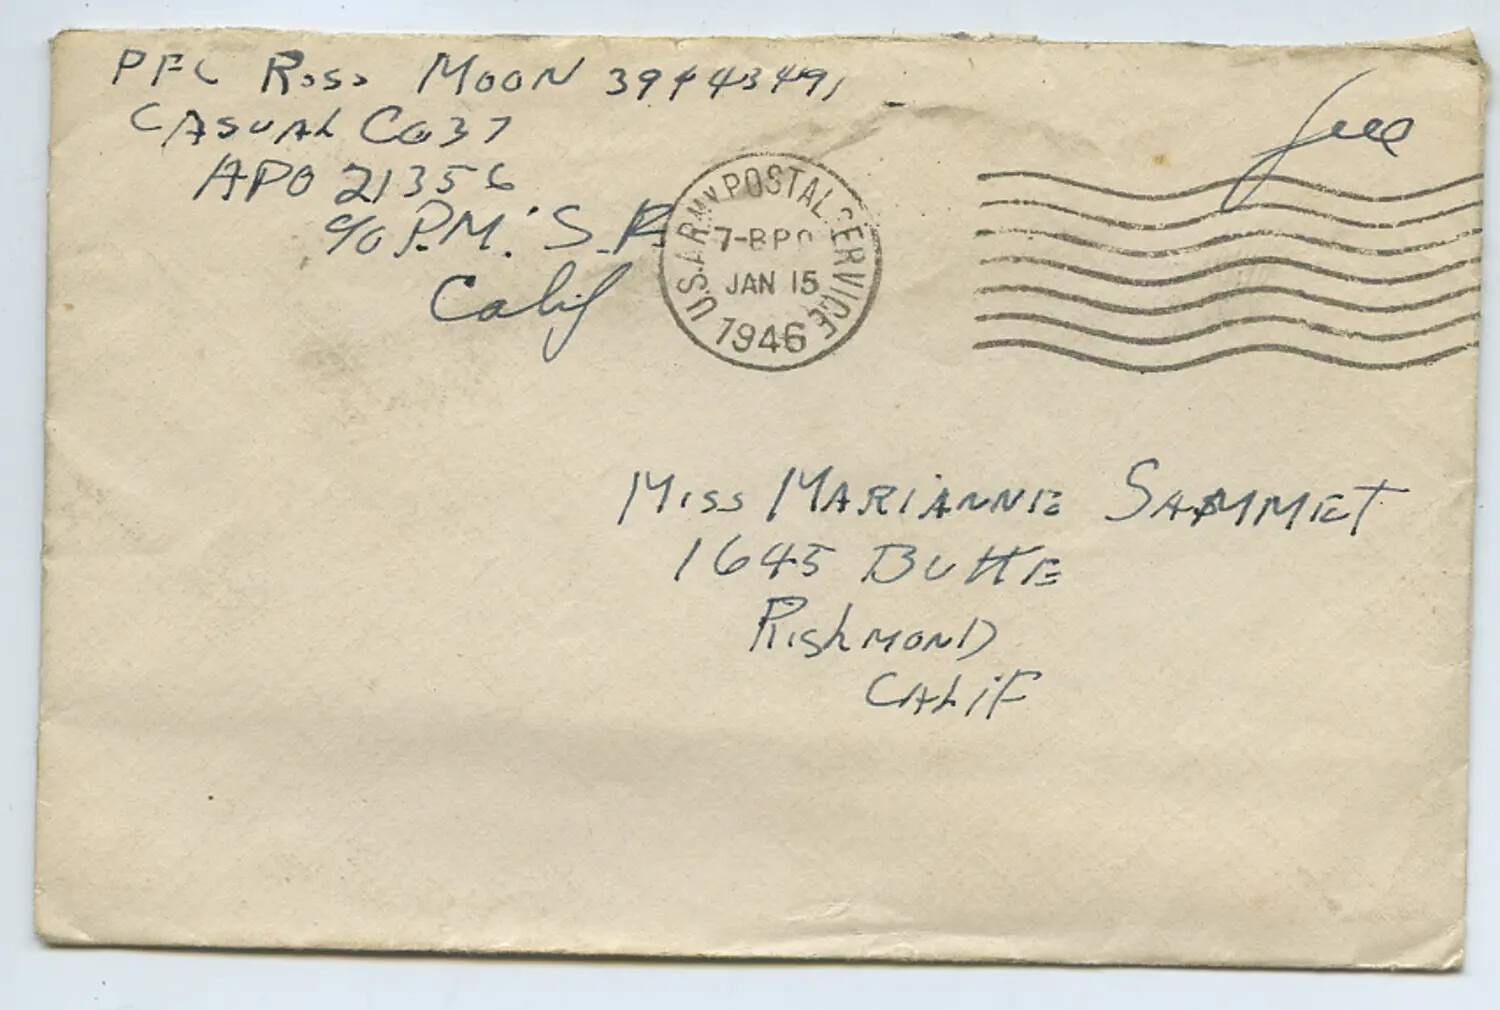 PFC Ross Moon 39443491
Casual Co 37
APO 21356
c/o P.M. S.F.
Calif
Free
U.S. ARMY POSTAL SERVICE
7-BPO
JAN 15
1946
Miss Marianne Sammet
1645 Butte
Rishmond
Calif